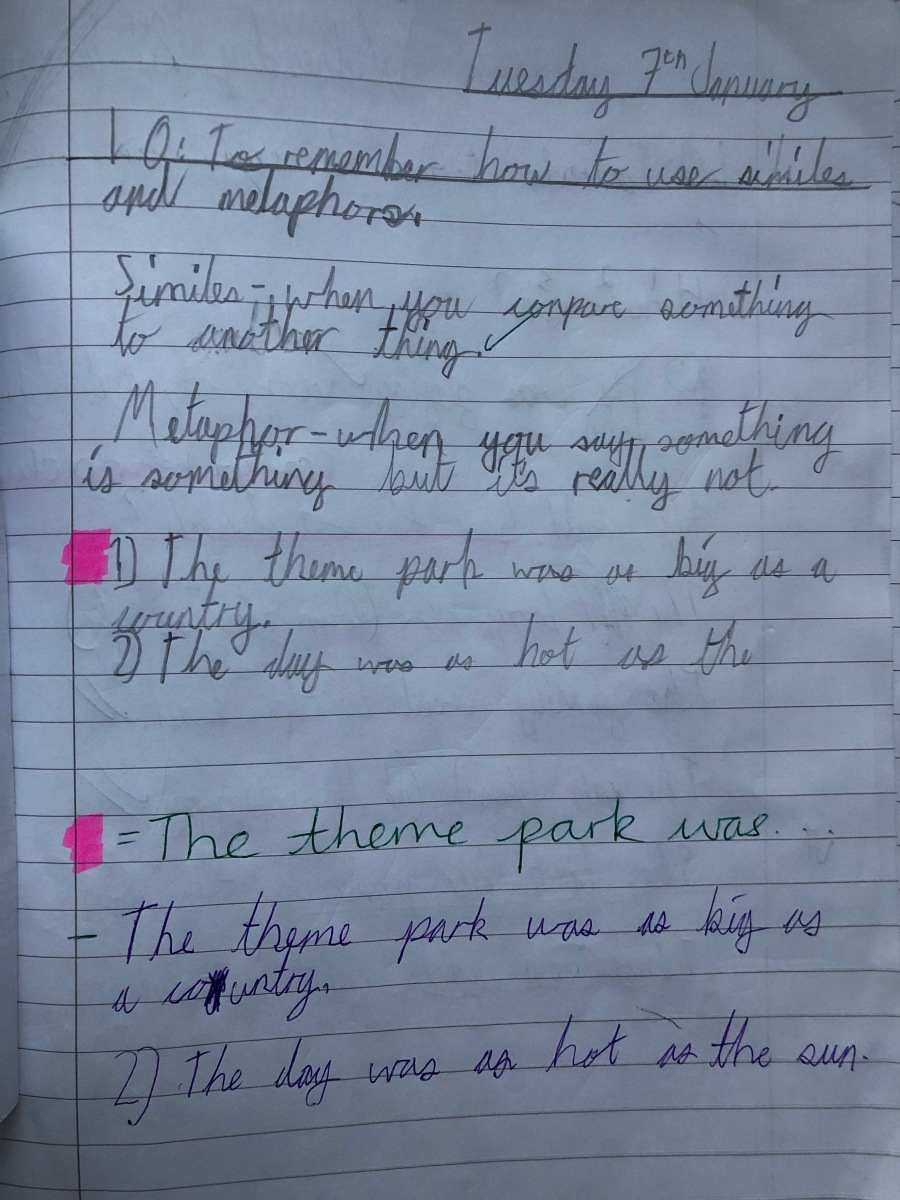 Tuesday 7th January
LO: To remember how to use similes
and metaphors.
Similes-, when you conpare something
to another thing.
Metaphor-when you say something
is something but it's really not.
1) The theme park was as big as a
country.
2) The day was as hot as the
= The theme park was...
- The theme park was as big as
a country.
2) The day was as hot as the sun.